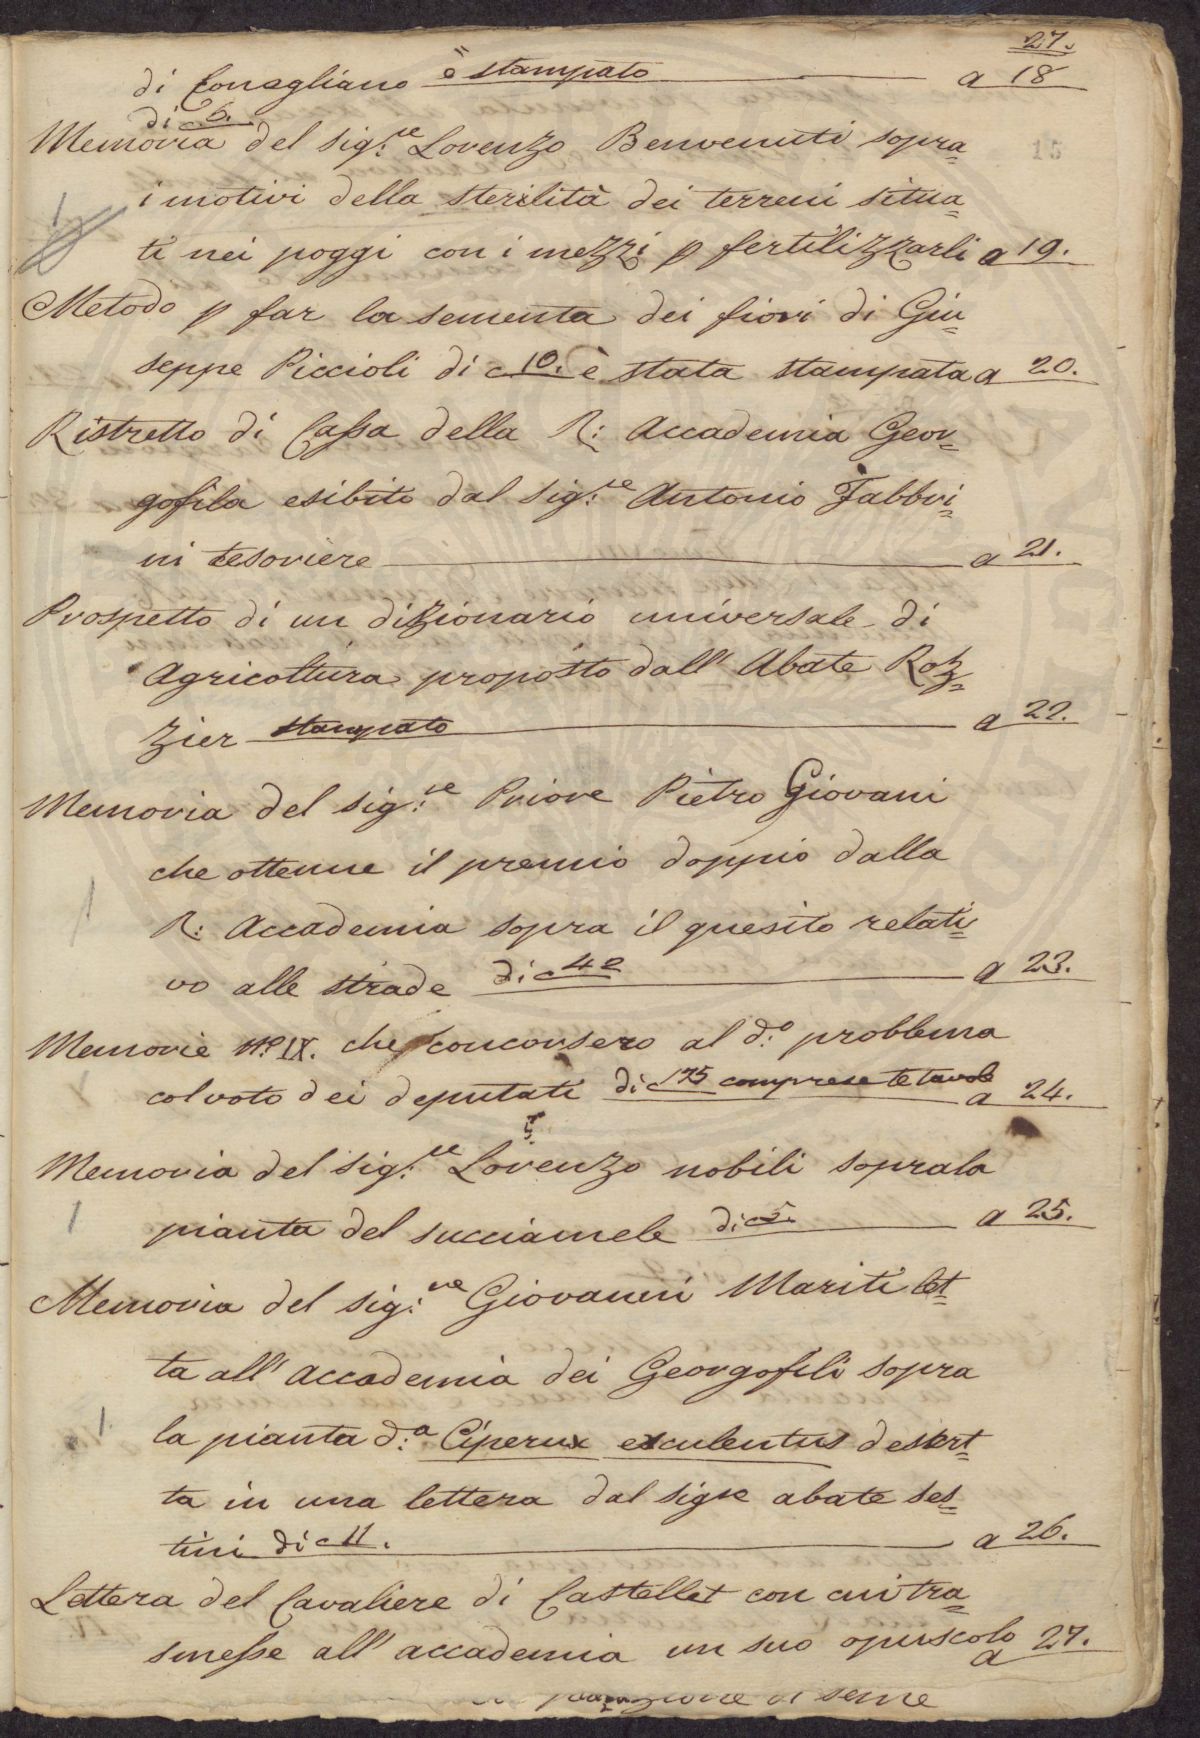 27.
di Conegliano è stampato a 18
di c 6.
Memoria del sig.re Lorenzo Benvenuti sopra=
15
i motivi della sterilità dei terreni situa=
ti nei poggi con i mezzi p fertilizzarli a 19.
Metodo p far la sementa dei fiori di Giu=
seppe Piccioli di c 10. è stata stampata a 20.
Ristretto di Cassa della R: Accademia Geor=
gofila esibito dal sig.re Antonio Fabbri=
ni tesoriere a 21.
Prospetto di un dizionario universale di
Agricoltura proposto dall' Abate Roz=
zier stampato a 22.
Memoria del sig.re Priore Pietro Giovani
che ottenne il premio doppio dalla
R: Accademia sopra il quesito relati=
vo alle strade di c 42 a 23.
Memorie n.o IX. che concorsero al d.o problema
col voto dei deputati di c 175 comprese le tavole a 24.
5
Memoria del sig.re Lorenzo nobili soprala
pianta del succiamele di c 5. a 25.
Memoria del sig.re Giovanni Mariti let=
ta all' accademia dei Georgofili sopra
la pianta d.a Ciperux esculentus descrit=
ta in una lettera dal sigre abate ses=
tini di c 11. a 26.
Lettera del Cavaliere di Castellet con cui tra=
smesse all' accademia un suo opuscolo a 27.
di seme